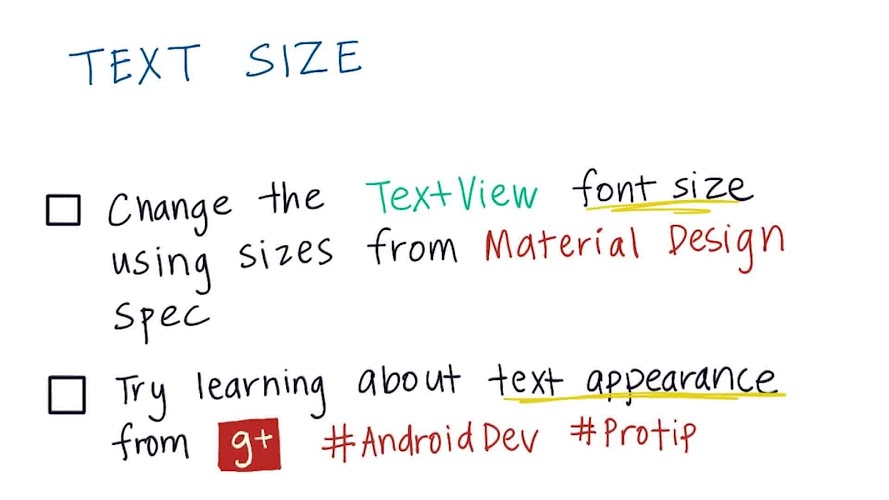 TEXT SIZE
Change the TextView font size
using sizes from Material Design
spec
Try learning about text appearance
from g+ #AndroidDev #Protip